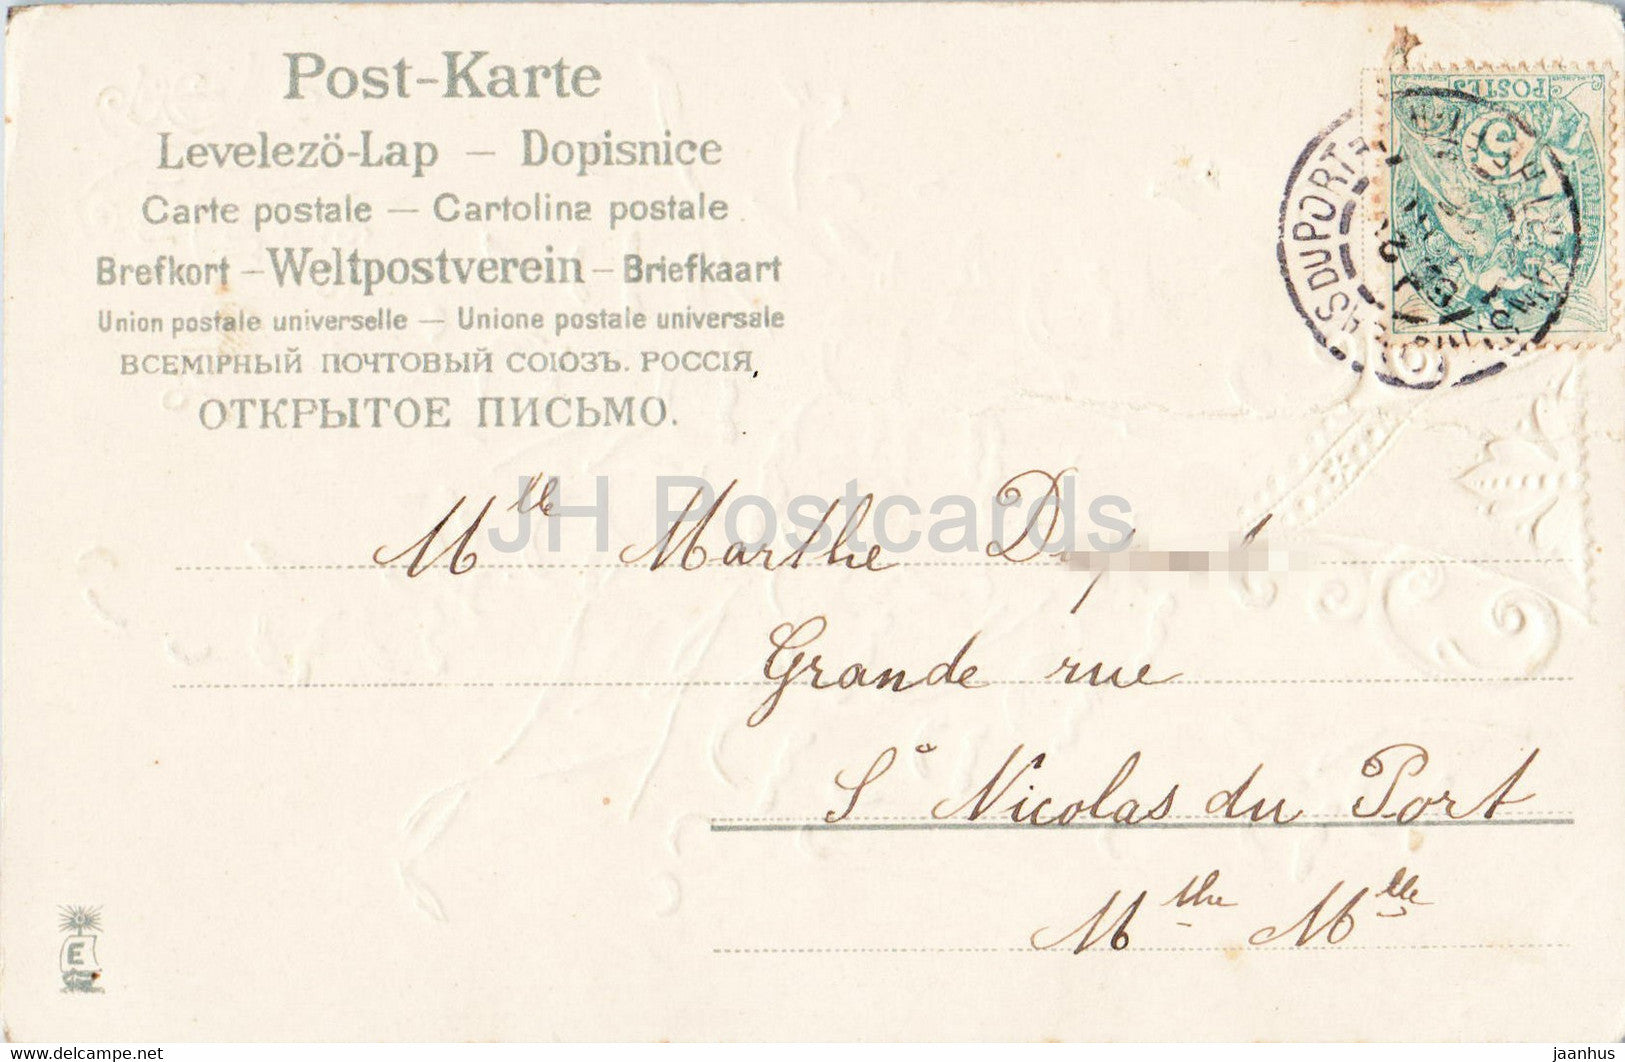 Post-Karte
Levelező-Lap – Dopisnice
Carte postale — Cartolina postale
Brefkort – Weltpostverein – Briefkaart
Union postale universelle — Unione postale universale
ВСЕМІРНЫЙ ПОЧТОВЫЙ СОЮЗЪ. РОССІЯ.
ОТКРЫТОЕ ПИСЬМО.
POSTES
5
AS DU PORT
JH Postcards
Mlle Marthe
Grande rue
St Nicolas du Port
Mthe Mlle
E
delcampe.net
jaanhus